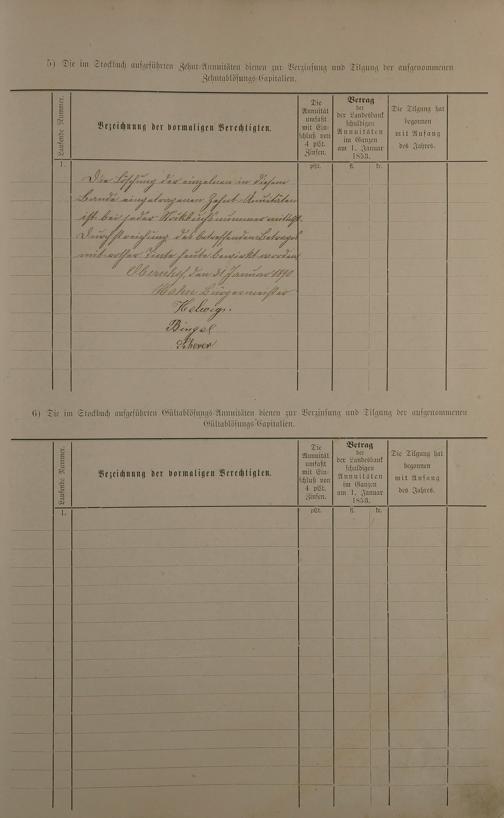 5) Die im Stockbuch aufgeführten Zehnt-Annuitäten dienen zur Verzinsung und Tilgung der aufgenommenen
Zehntablösungs-Capitalien.
Laufende Nummer.
Bezeichnung der vormaligen Berechtigten.
Die
Annuität
umfaßt
mit Ein-
schluß von
4 pCt.
Zinsen.
Betrag
der
der Landesbank
schuldigen
Annuitäten
im Ganzen
am 1. Januar
1853.
Die Tilgung hat
begonnen
mit Anfang
des Jahres.
1.
pCt.
fl. kr.
Die Löschung der einzelnen in diesem
Bande eingetragenen Zehnt-Annuitäten
ist bei jeder Stockbuchsnummer mittelst
Durchstreichung des betreffenden Betrages
mit rother Tinte heute bewirkt worden
den 31 Januar 1890
Bürgermeister
Helwig.
Bingel
Scherer
6) Die im Stockbuch aufgeführten Gültablösungs-Annuitäten dienen zur Verzinsung und Tilgung der aufgenommenen
Gültablösungs-Capitalien.
Laufende Nummer.
Bezeichnung der vormaligen Berechtigten.
Die
Annuität
umfaßt
mit Ein-
schluß von
4 pCt.
Zinsen.
Betrag
der
der Landesbank
schuldigen
Annuitäten
im Ganzen
am 1. Januar
1853.
Die Tilgung hat
begonnen
mit Anfang
des Jahres.
1.
pCt.
fl. kr.